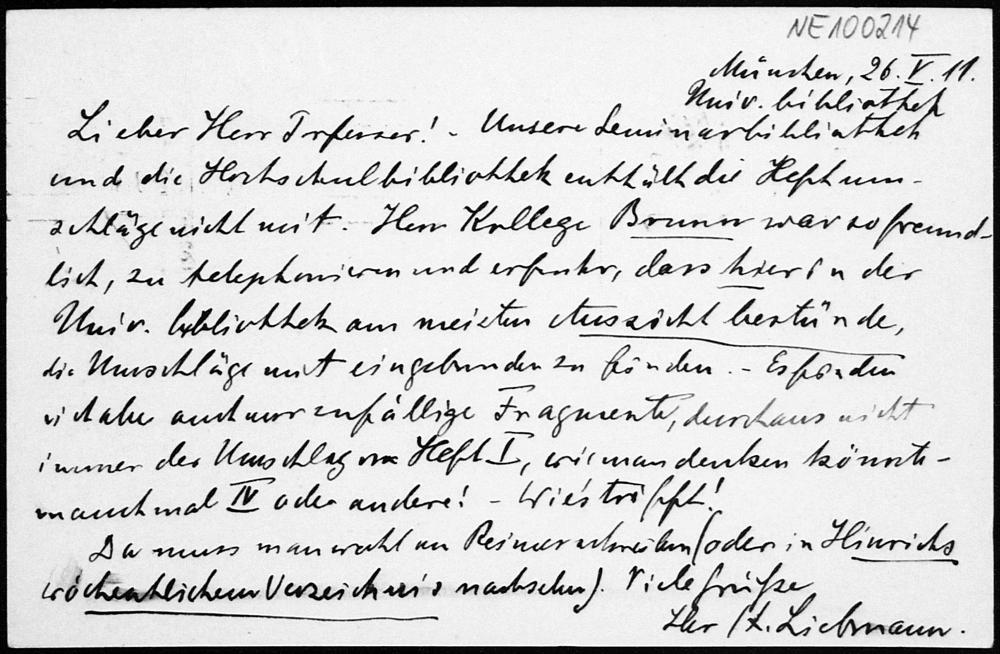 NE100214
München, 26. V. 11.
Univ. bibliothek
Lieber Herr Professor! - Unsere Seminarbibliothek
und die Hochschulbibliothek enthält die Heftum-
schläge nicht mit. Herr Kollege Brunn war so freund-
lich, zu telephonieren und erfuhr, dass hier in der
Univ. bibliothek am meisten Aussicht bestünde,
die Umschläge mit eingebunden zu finden. - Es fänden
sich aber auch nur zufällige Fragmente, durchaus nicht
immer der Umschlag von Heft I, wie man denken könnte -
manchmal IV oder andere! - Wie's trifft!
Da muss man wohl an Reimer schreiben (oder in Hinrichs
wöchentlichem Verzeichnis nachsehn). Viele Grüße
Ihr H. Liebmann.